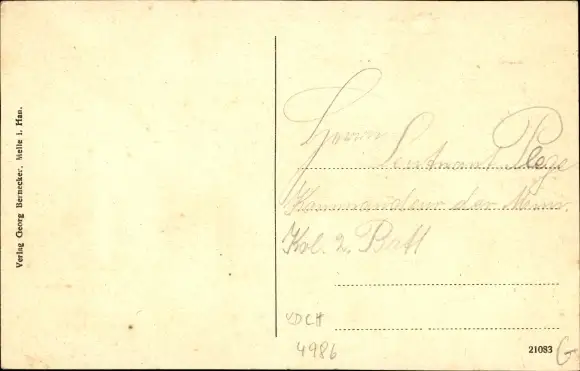 Verlag Georg Bernecker, Melle i. Han.
Herrn
Leutnant Plege
Kommandeur der Mun.
Kol. 2. Batt
4986
21083
G